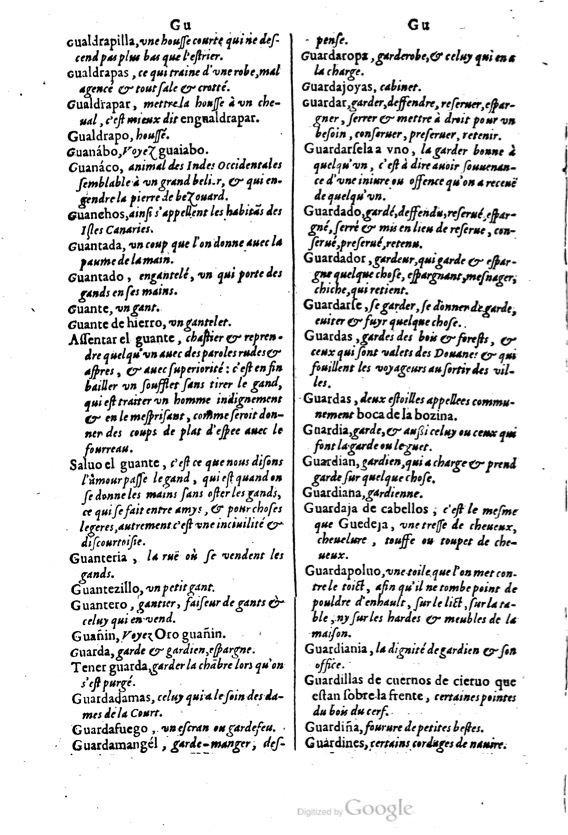 Gu
Gualdrapilla, vne housse courte qui ne des-
cend pas plus bas que l'estrier.
gualdrapas, ce qui traine d'vne robe, mal
agencé & tout sale & crotté.
Gualdrapar, mettre la housse à vn che-
ual, c'est mieux dit engualdrapar.
Gualdrapo, houssé.
Guanábo, Voyez guaiabo.
Guanáco, animal des Indes Occidentales
semblable à vn grand belier, & qui en-
gendre la pierre de bezouard.
Guanchos, ainsi s'appellent les habitãs des
Isles Canaries.
Guantada, vn coup que l'on donne auec la
paume de la main.
Guantado, engantelé, vn qui porte des
gands en ses mains.
Guante, vn gant.
Guante de hierro, vn gantelet.
Assentar el guante, chastier & repren-
dre quelqu'vn auec des paroles rudes &
aspres, & auec superiorité: c'est en fin
bailler vn soufflet sans tirer le gand,
qui est traiter vn homme indignement
& en le mesprisant, comme seroit don-
ner des coups de plat d'espee auec le
fourreau.
Saluo el guante, c'est ce que nous disons
l'amour passe le gand, qui est quand on
se donne les mains sans oster les gands,
ce qui se fait entre amys, & pour choses
legeres, autrement c'est vne inciuilité &
discourtoisie.
Guanteria, la ruë où se vendent les
gands.
Guantezillo, vn petit gant.
Guantero, gantier, faiseur de gants &
celuy qui en vend.
Guañin, Voyez Oro guañin.
Guarda, garde & gardien, espargne.
Tener guarda, garder la chãbre lors qu'on
s'est purgé.
Guardadamas, celuy qui a le soin des da-
mes de la Court.
Guardafuego, vn escran ou gardefeu.
Guardamangél, garde-manger, des-
Gu
pense.
Guardaropa, garderobe, & celuy qui en a
la charge.
Guardajoyas, cabinet.
Guardar, garder, deffendre, reseruer, espar-
gner, serrer & mettre à droit pour vn
besoin, conseruer, preseruer, retenir.
Guardarsela a vno, la garder bonne à
quelqu'vn, c'est à dire auoir souuenan-
ce d'vne iniure ou offence qu'on a receuë
de quelqu'vn.
Guardado, gardé, deffendu, reserué, espar-
gné, serré & mis en lieu de reserue, con-
serué, preserué, retenu.
Guardador, gardeur, qui garde & espar-
gne quelque chose, espargnant, mesnager,
chiche, qui retient.
Guardarse, se garder, se donner de garde,
euiter & fuyr quelque chose.
Guardas, gardes des bois & forests, &
ceux qui sont valets des Douanes & qui
fouillent les voyageurs au sortir des vil-
les.
Guardas, deux estoilles appellees commu-
nement boca de la bozina.
Guardia, garde, & aussi celuy ou ceux qui
font la garde ou le guet.
Guardian, gardien, qui a charge & prend
garde sur quelque chose.
Guardiana, gardienne.
Guardaja de cabellos, c'est le mesme
que Guedeja, vne tresse de cheueux,
cheuelure, touffe ou toupet de che-
ueux.
Guardapoluo, vne toile que l'on met con-
tre le toict, afin qu'il ne tombe point de
pouldre d'enhault, sur le lict, sur la ta-
ble, ny sur les hardes & meubles de la
maison.
Guardiania, la dignité de gardien & son
office.
Guardillas de cuernos de cieruo que
estan sobre la frente, certaines pointes
du bois du cerf.
Guardiña, fourure de petites bestes.
Guardines, certains cordages de nauire.
Digitized by Google